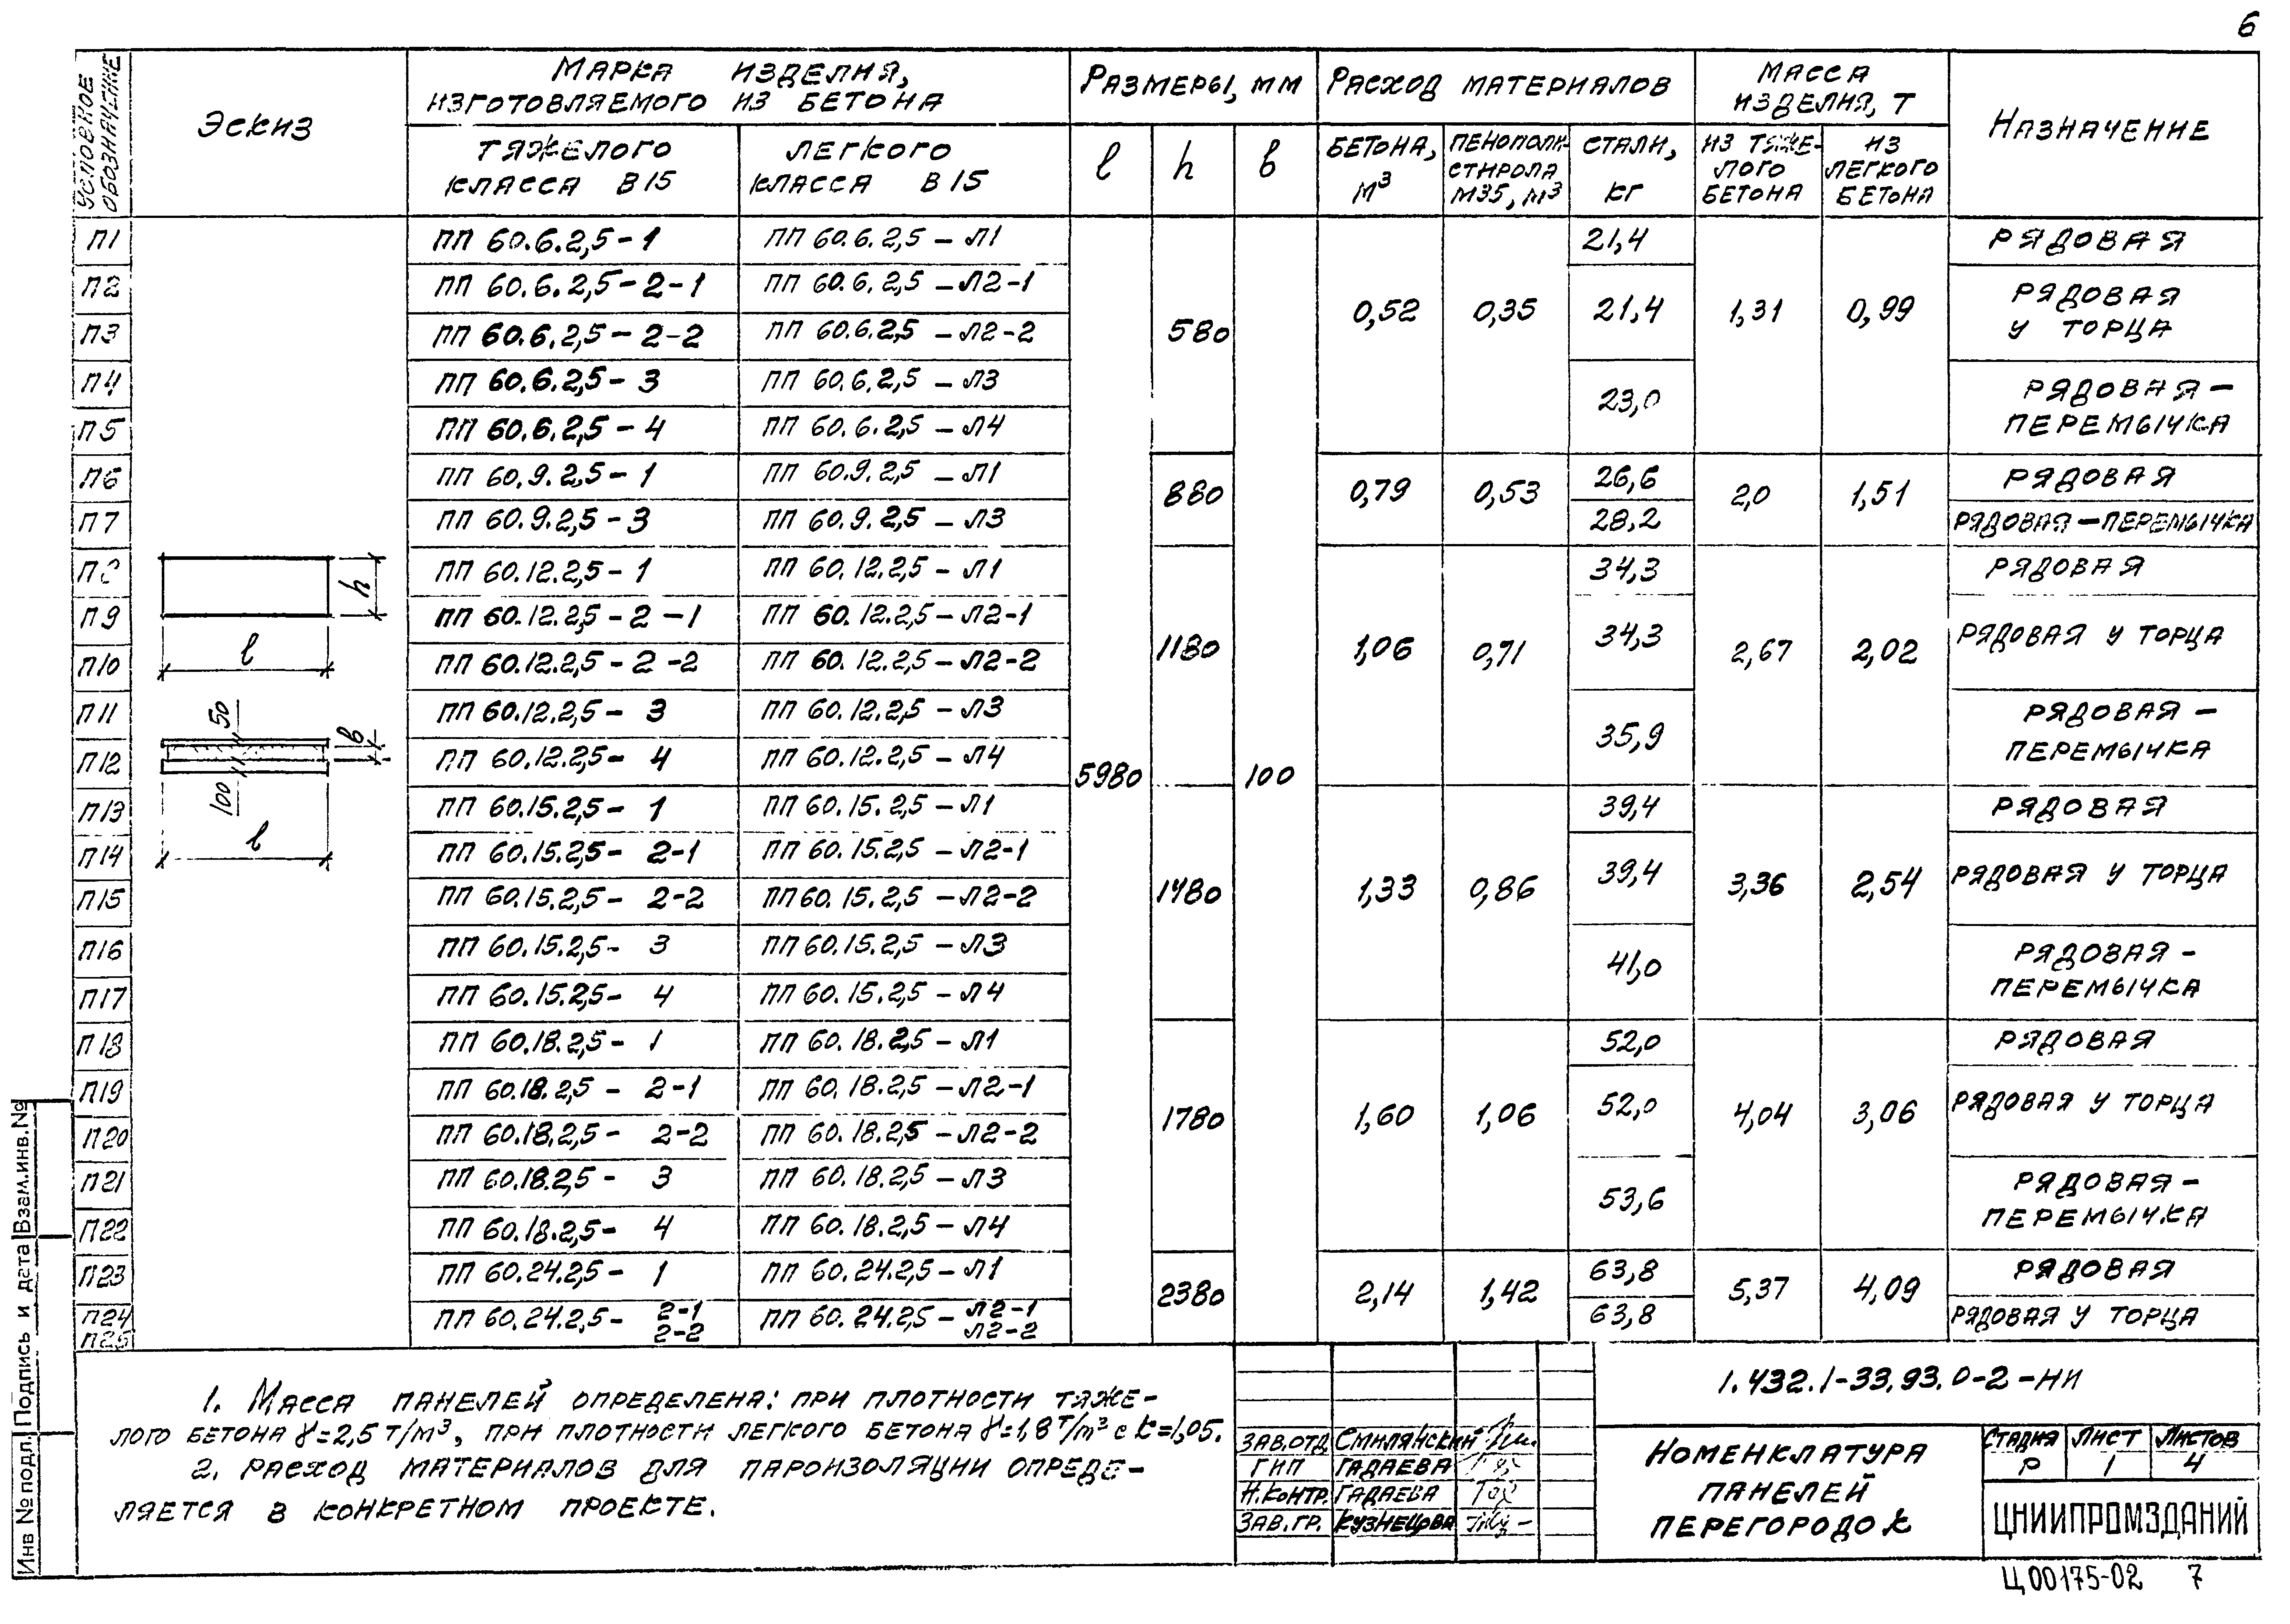 6
УСЛОВНОЕ ОБОЗНАЧЕНИЕ
ЭСКИЗ
МАРКА ИЗДЕЛИЯ,
ИЗГОТОВЛЯЕМОГО ИЗ БЕТОНА
РАЗМЕРЫ, ММ
РАСХОД МАТЕРИАЛОВ
МАССА
ИЗДЕЛИЯ, Т
НАЗНАЧЕНИЕ
ТЯЖЕЛОГО
КЛАССА В15
ЛЕГКОГО
КЛАССА В15
l
h
b
БЕТОНА,
М³
ПЕНОПОЛИ-
СТИРОЛА
М35, М³
СТАЛИ,
КГ
ИЗ ТЯЖЕ-
ЛОГО
БЕТОНА
ИЗ
ЛЕГКОГО
БЕТОНА
П1 ПП 60.6.2,5-1 ПП 60.6.2,5-Л1 21,4 РЯДОВАЯ
П2 ПП 60.6.2,5-2-1 ПП 60.6.2,5-Л2-1 РЯДОВАЯ
580 0,52 0,35 21,4 1,31 0,99
П3 ПП 60.6.2,5-2-2 ПП 60.6.2,5-Л2-2 У ТОРЦА
П4 ПП 60.6.2,5-3 ПП 60.6.2,5-Л3 РЯДОВАЯ-
23,0
П5 ПП 60.6.2,5-4 ПП 60.6.2,5-Л4 ПЕРЕМЫЧКА
П6 ПП 60.9.2,5-1 ПП 60.9.2,5-Л1 26,6 РЯДОВАЯ
880 0,79 0,53 2,0 1,51
П7 ПП 60.9.2,5-3 ПП 60.9.2,5-Л3 28,2 РЯДОВАЯ-ПЕРЕМЫЧКА
П8 ПП 60.12.2,5-1 ПП 60.12.2,5-Л1 34,3 РЯДОВАЯ
h
П9 ПП 60.12.2,5-2-1 ПП 60.12.2,5-Л2-1
1180 1,06 0,71 34,3 2,67 2,02 РЯДОВАЯ У ТОРЦА
П10 l ПП 60.12.2,5-2-2 ПП 60.12.2,5-Л2-2
П11 50 ПП 60.12.2,5-3 ПП 60.12.2,5-Л3 РЯДОВАЯ-
b
35,9
П12 ПП 60.12.2,5-4 ПП 60.12.2,5-Л4 ПЕРЕМЫЧКА
5980 100
П13 100 ПП 60.15.2,5-1 ПП 60.15.2,5-Л1 39,4 РЯДОВАЯ
П14 l ПП 60.15.2,5-2-1 ПП 60.15.2,5-Л2-1
1480 1,33 0,86 39,4 3,36 2,54 РЯДОВАЯ У ТОРЦА
П15 ПП 60.15.2,5-2-2 ПП 60.15.2,5-Л2-2
П16 ПП 60.15.2,5-3 ПП 60.15.2,5-Л3 РЯДОВАЯ-
41,0
П17 ПП 60.15.2,5-4 ПП 60.15.2,5-Л4 ПЕРЕМЫЧКА
П18 ПП 60.18.2,5-1 ПП 60.18.2,5-Л1 52,0 РЯДОВАЯ
П19 ПП 60.18.2,5-2-1 ПП 60.18.2,5-Л2-1
1780 1,60 1,06 52,0 4,04 3,06 РЯДОВАЯ У ТОРЦА
П20 ПП 60.18.2,5-2-2 ПП 60.18.2,5-Л2-2
П21 ПП 60.18.2,5-3 ПП 60.18.2,5-Л3 РЯДОВАЯ-
53,6
П22 ПП 60.18.2,5-4 ПП 60.18.2,5-Л4 ПЕРЕМЫЧКА
П23 ПП 60.24.2,5-1 ПП 60.24.2,5-Л1 63,8 РЯДОВАЯ
2380 2,14 1,42 5,37 4,09
П24 ПП 60.24.2,5-2-1 ПП 60.24.2,5-Л2-1 63,8 РЯДОВАЯ У ТОРЦА
П25 2-2 Л2-2
1. МАССА ПАНЕЛЕЙ ОПРЕДЕЛЕНА: ПРИ ПЛОТНОСТИ ТЯЖЕ-
ЛОГО БЕТОНА γ=2,5 Т/М³, ПРИ ПЛОТНОСТИ ЛЕГКОГО БЕТОНА γ=1,8 Т/М³ с К=1,05.
2. РАСХОД МАТЕРИАЛОВ ДЛЯ ПАРОИЗОЛЯЦИИ ОПРЕДЕ-
ЛЯЕТСЯ В КОНКРЕТНОМ ПРОЕКТЕ.
ЗАВ.ОТД СМИЛЯНСКИЙ
ГИП ГАДАЕВА
Н.КОНТР. ГАДАЕВА
ЗАВ.ГР. КУЗНЕЦОВА
1.432.1-33.93.0-2-НИ
НОМЕНКЛАТУРА
ПАНЕЛЕЙ
ПЕРЕГОРОДОК
СТАДИЯ ЛИСТ ЛИСТОВ
Р 1 4
ЦНИИПРОМЗДАНИЙ
Ц00175-02 7
Инв № подл. Подпись и дата Взам.инв.№